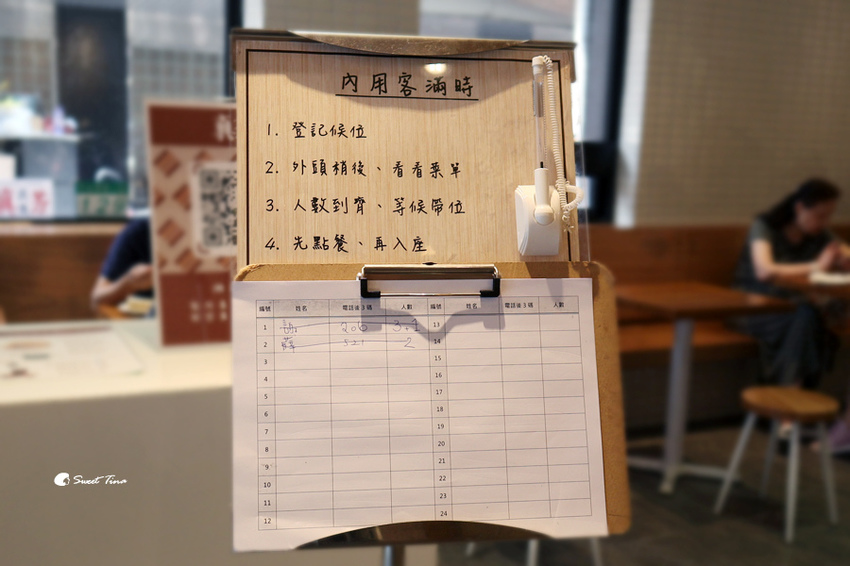 內用客滿時
1. 登記候位
2. 外頭稍後、看看菜單
3. 人數到齊、等候帶位
4. 先點餐、再入座
編號 姓名 電話後3碼 人數 編號 姓名 電話後3碼 人數
1 謝 206 3+1 13
2 蔣 521 2 14
3 15
4 16
5 17
6 18
7 19
8 20
9 21
10 22
11 23
12 24
Sweet Tina